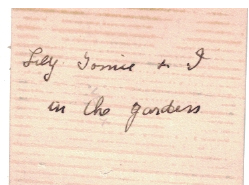 Lily Tonie & I
in the gardens